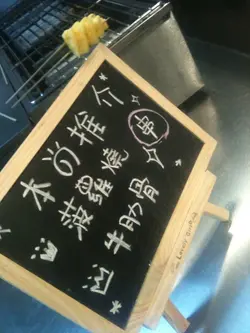 本の推介
菠蘿燒
牛肋骨
串